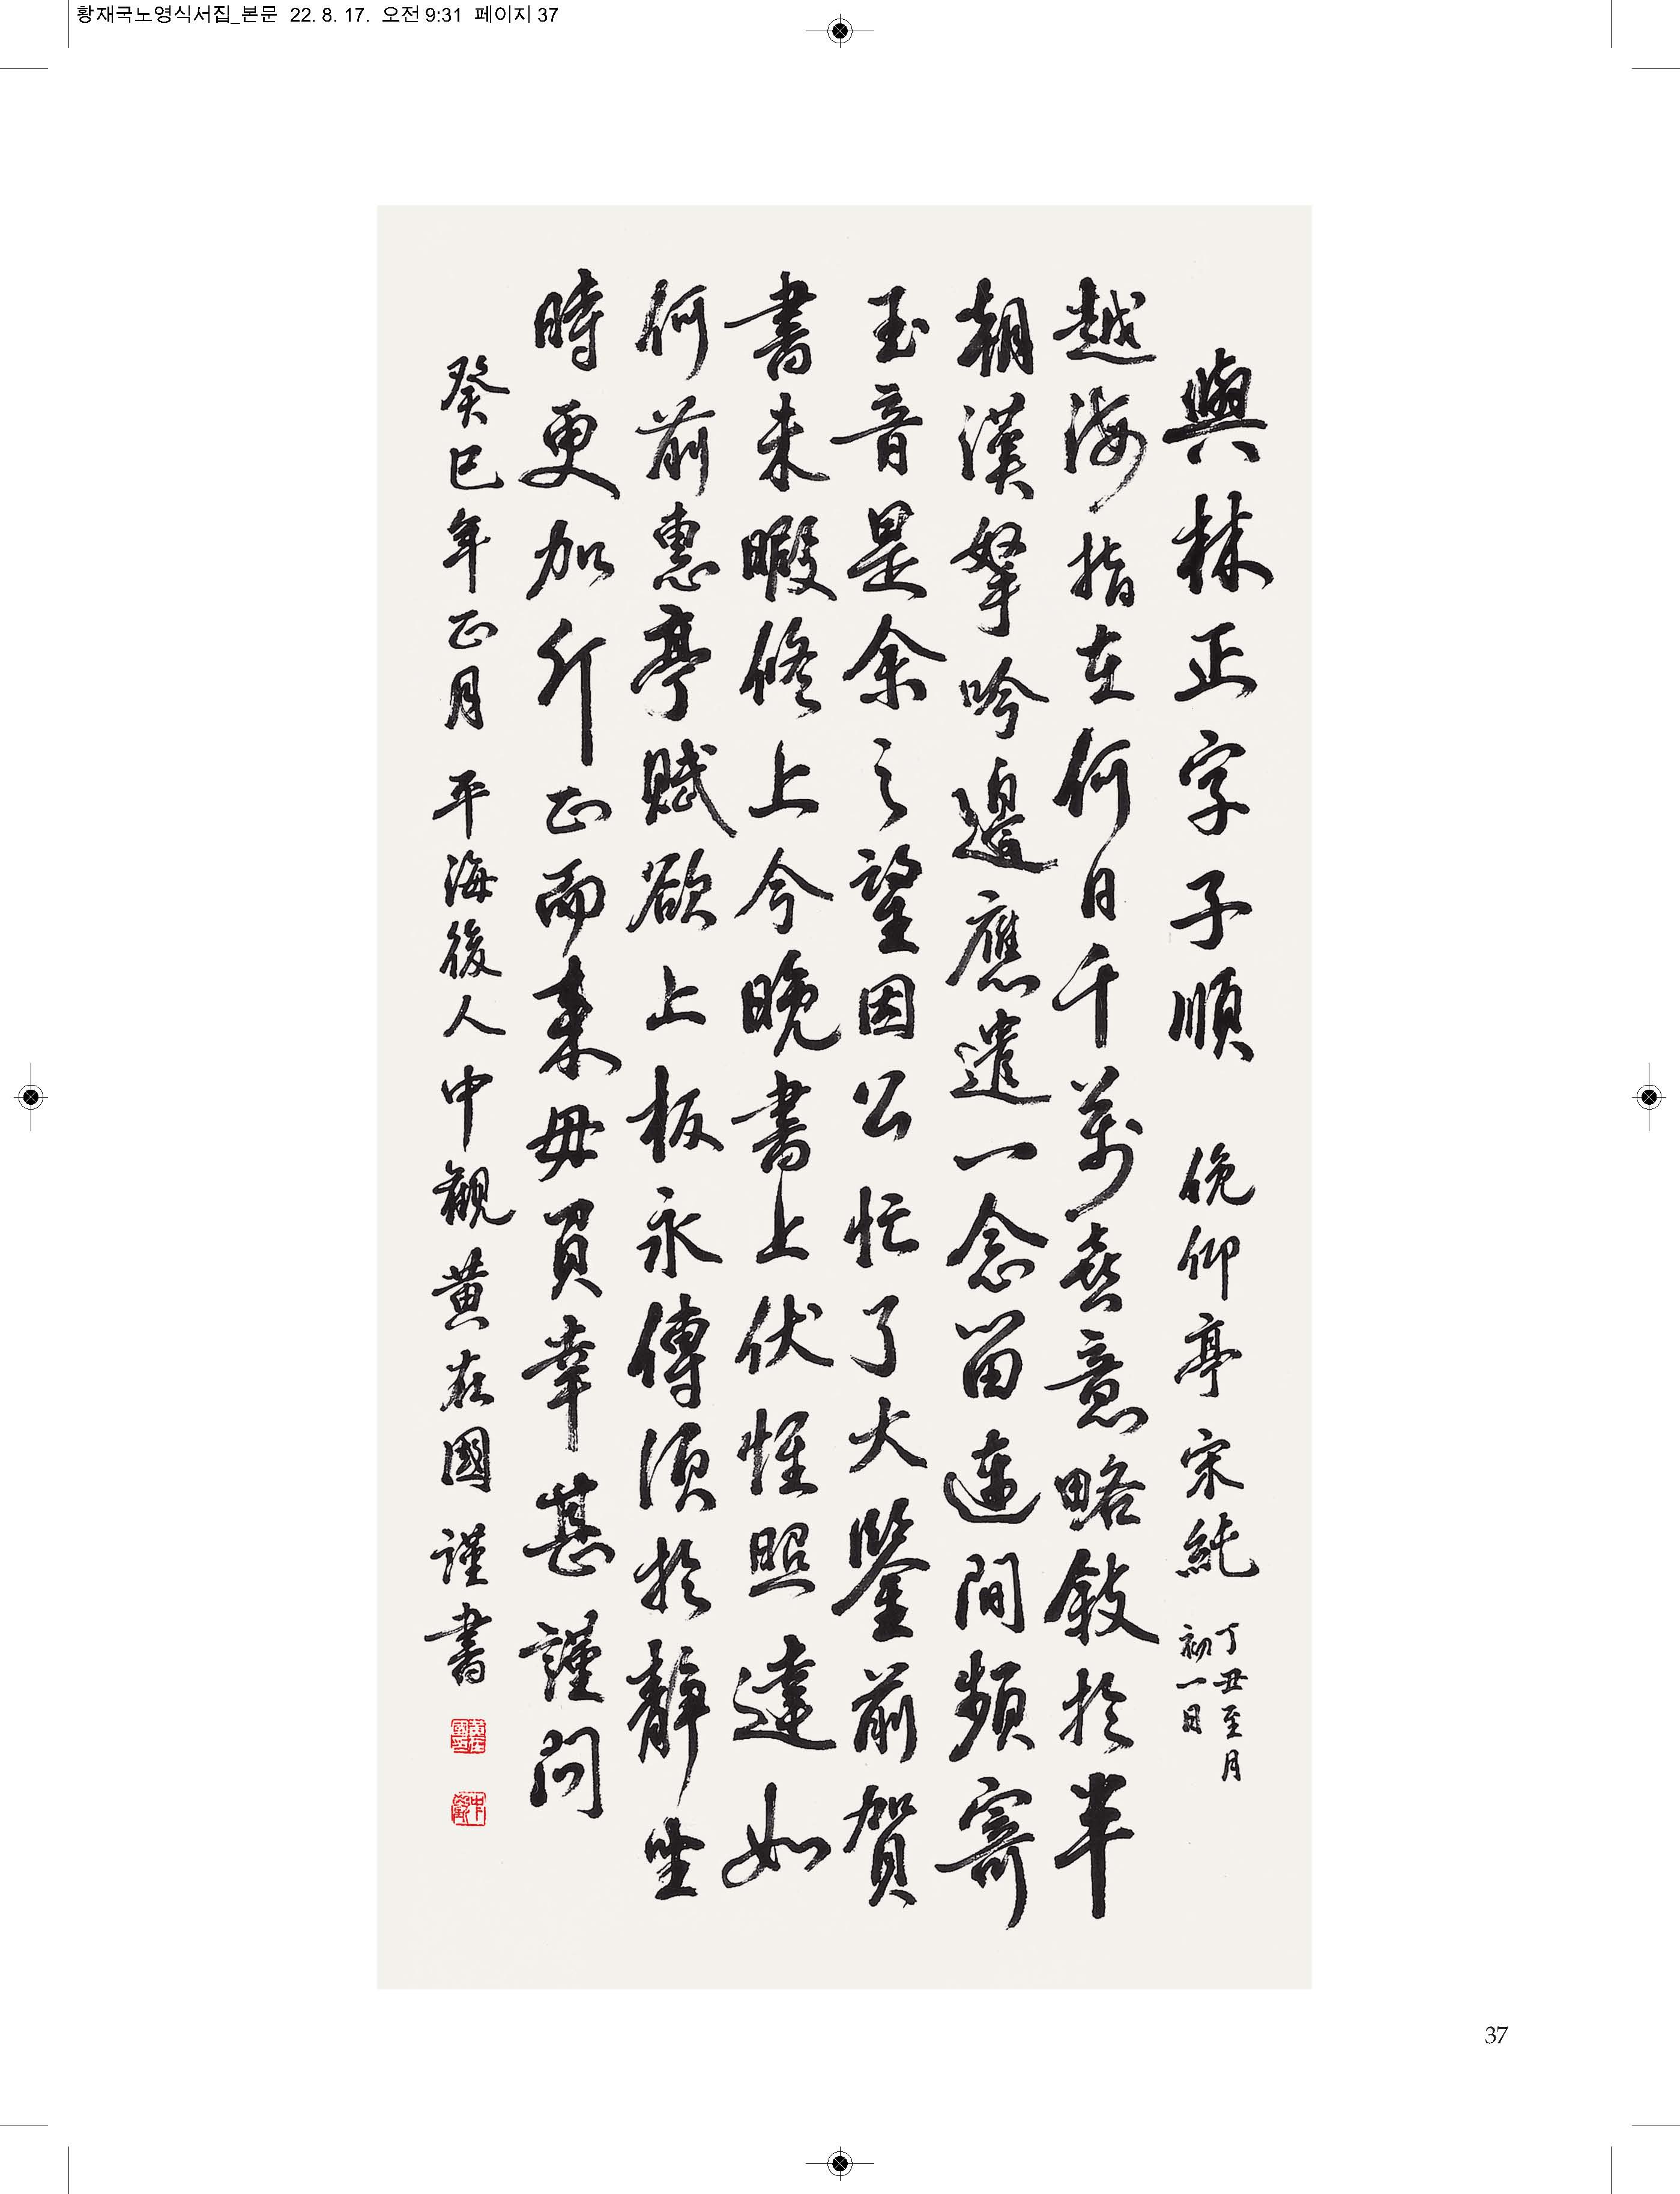 황재국노영식서집_본문 22. 8. 17. 오전 9:31 페이지 37
與林正字子順 俛仰亭宋純 丁丑至月
初一日
越海指在何日千萬喜意略敍於半
朝漢拏吟邊應遣一念留連間頻寄
玉音是余之望因公忙了大鑒前賀
書未暇修上今晩書上伏惟照達如
何前惠亭賦欲上板永傳須於靜坐
時更加斤正而來毋負幸甚謹問
癸巳年正月 平海後人中觀黃在國 謹書
37